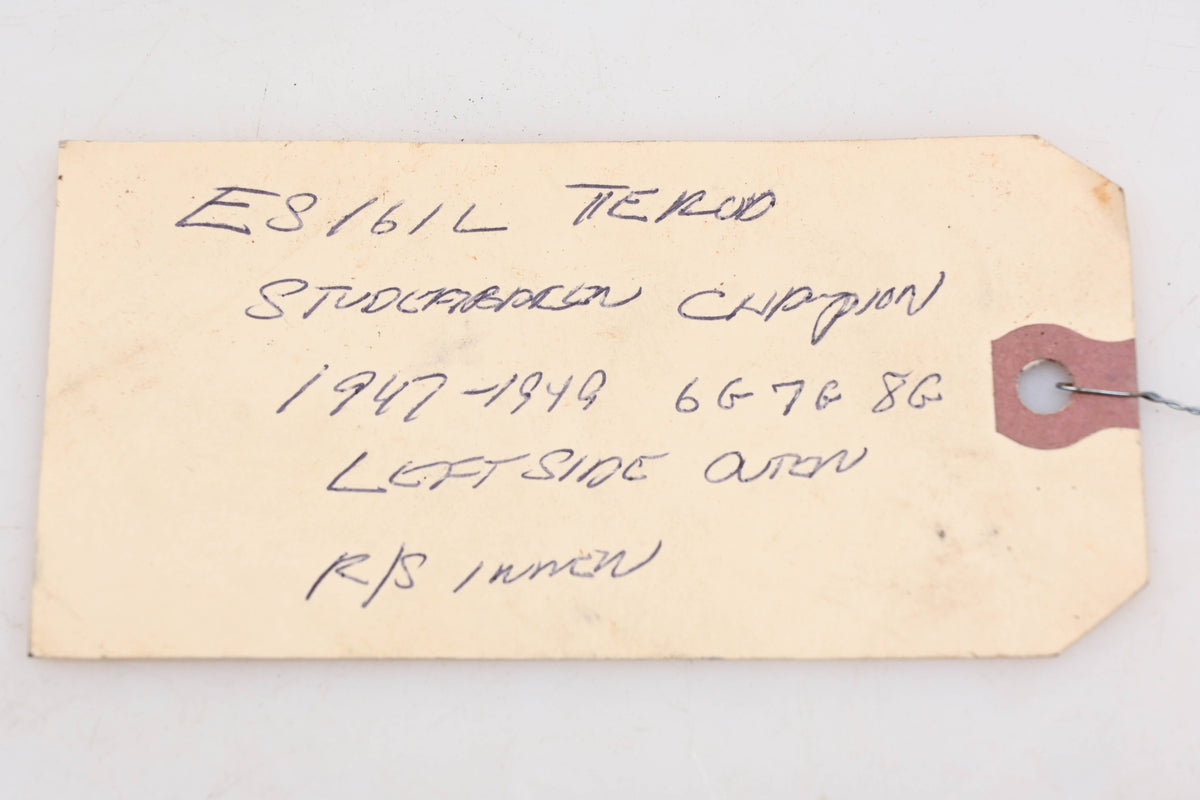 ES161L TIE ROD
STUDEBAKER CHAMPION
1947-1949 6G 7G 8G
LEFT SIDE OUTER
R/S INNER